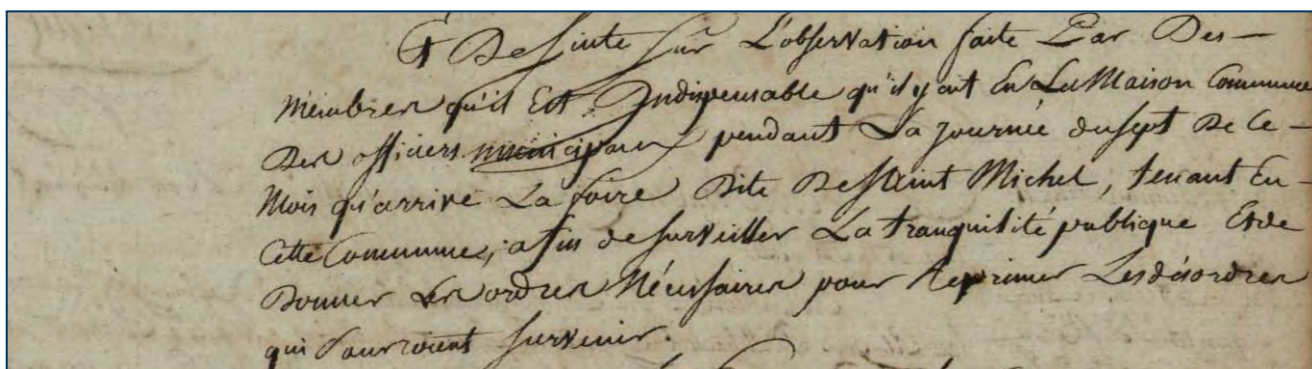 Et De Suite sur L'observation faite Par Des-
Membres qu'il Est Indispensable qu'il y ait En La Maison Commune
Des officiers municipaux pendant La journée du sept De Ce-
Mois qu'arrive La foire Dite De Saint Michel, tenant En-
Cette Commune, afin de surveiller La tranquilité publique Et de
Donner Les ordres Nécessaires pour Reprimer Les désordres
qui pourroient survenir.